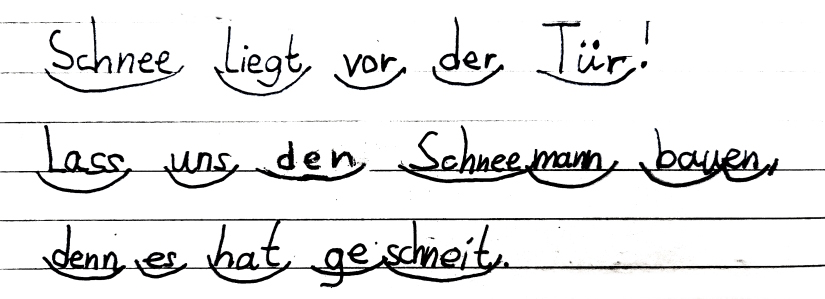 Schnee liegt vor der Tür!
Lass uns den Schneemann bauen,
denn es hat geschneit.